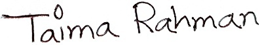 Taima Rahman